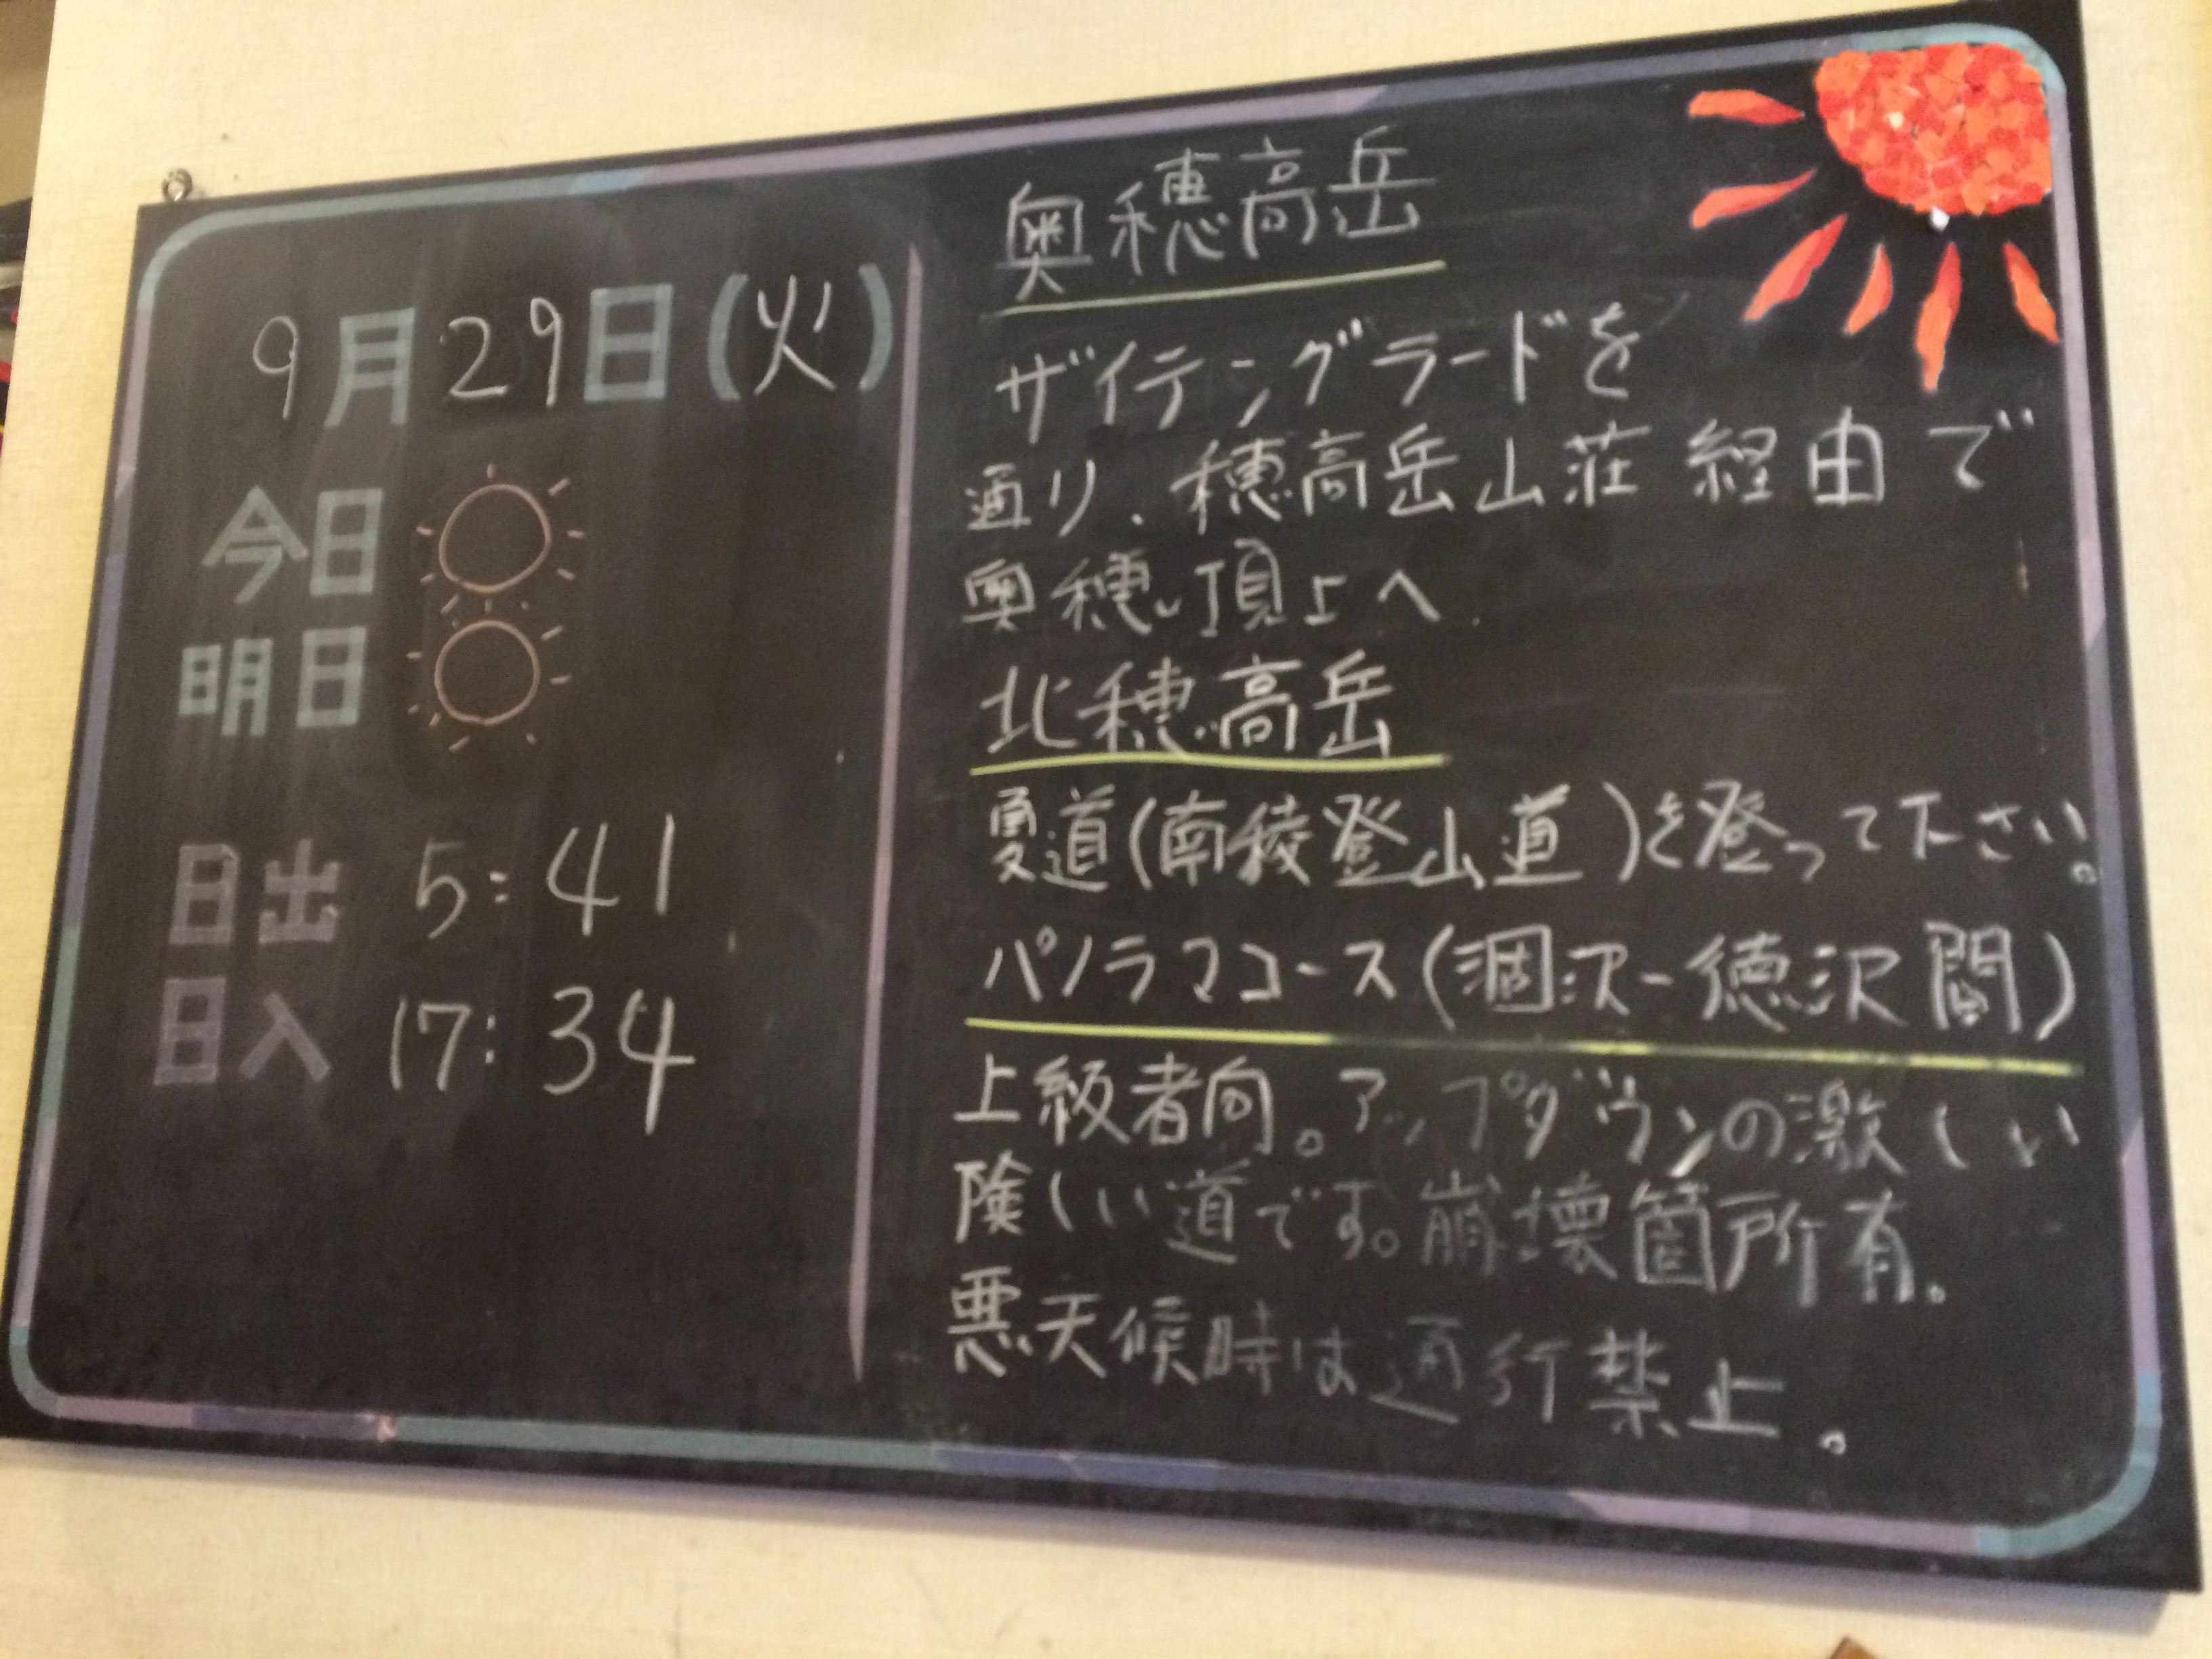 9月29日(火)
今日
明日
日出 5:41
日入 17:34
奥穂高岳
ザイテングラードを
通り、穂高岳山荘経由で
奥穂頂上へ
北穂高岳
夏道(南稜登山道)を登って下さい。
パノラマコース(涸沢-徳沢間)
上級者向。アップダウンの激しい
険しい道です。崩壊箇所有。
悪天候時は通行禁止。